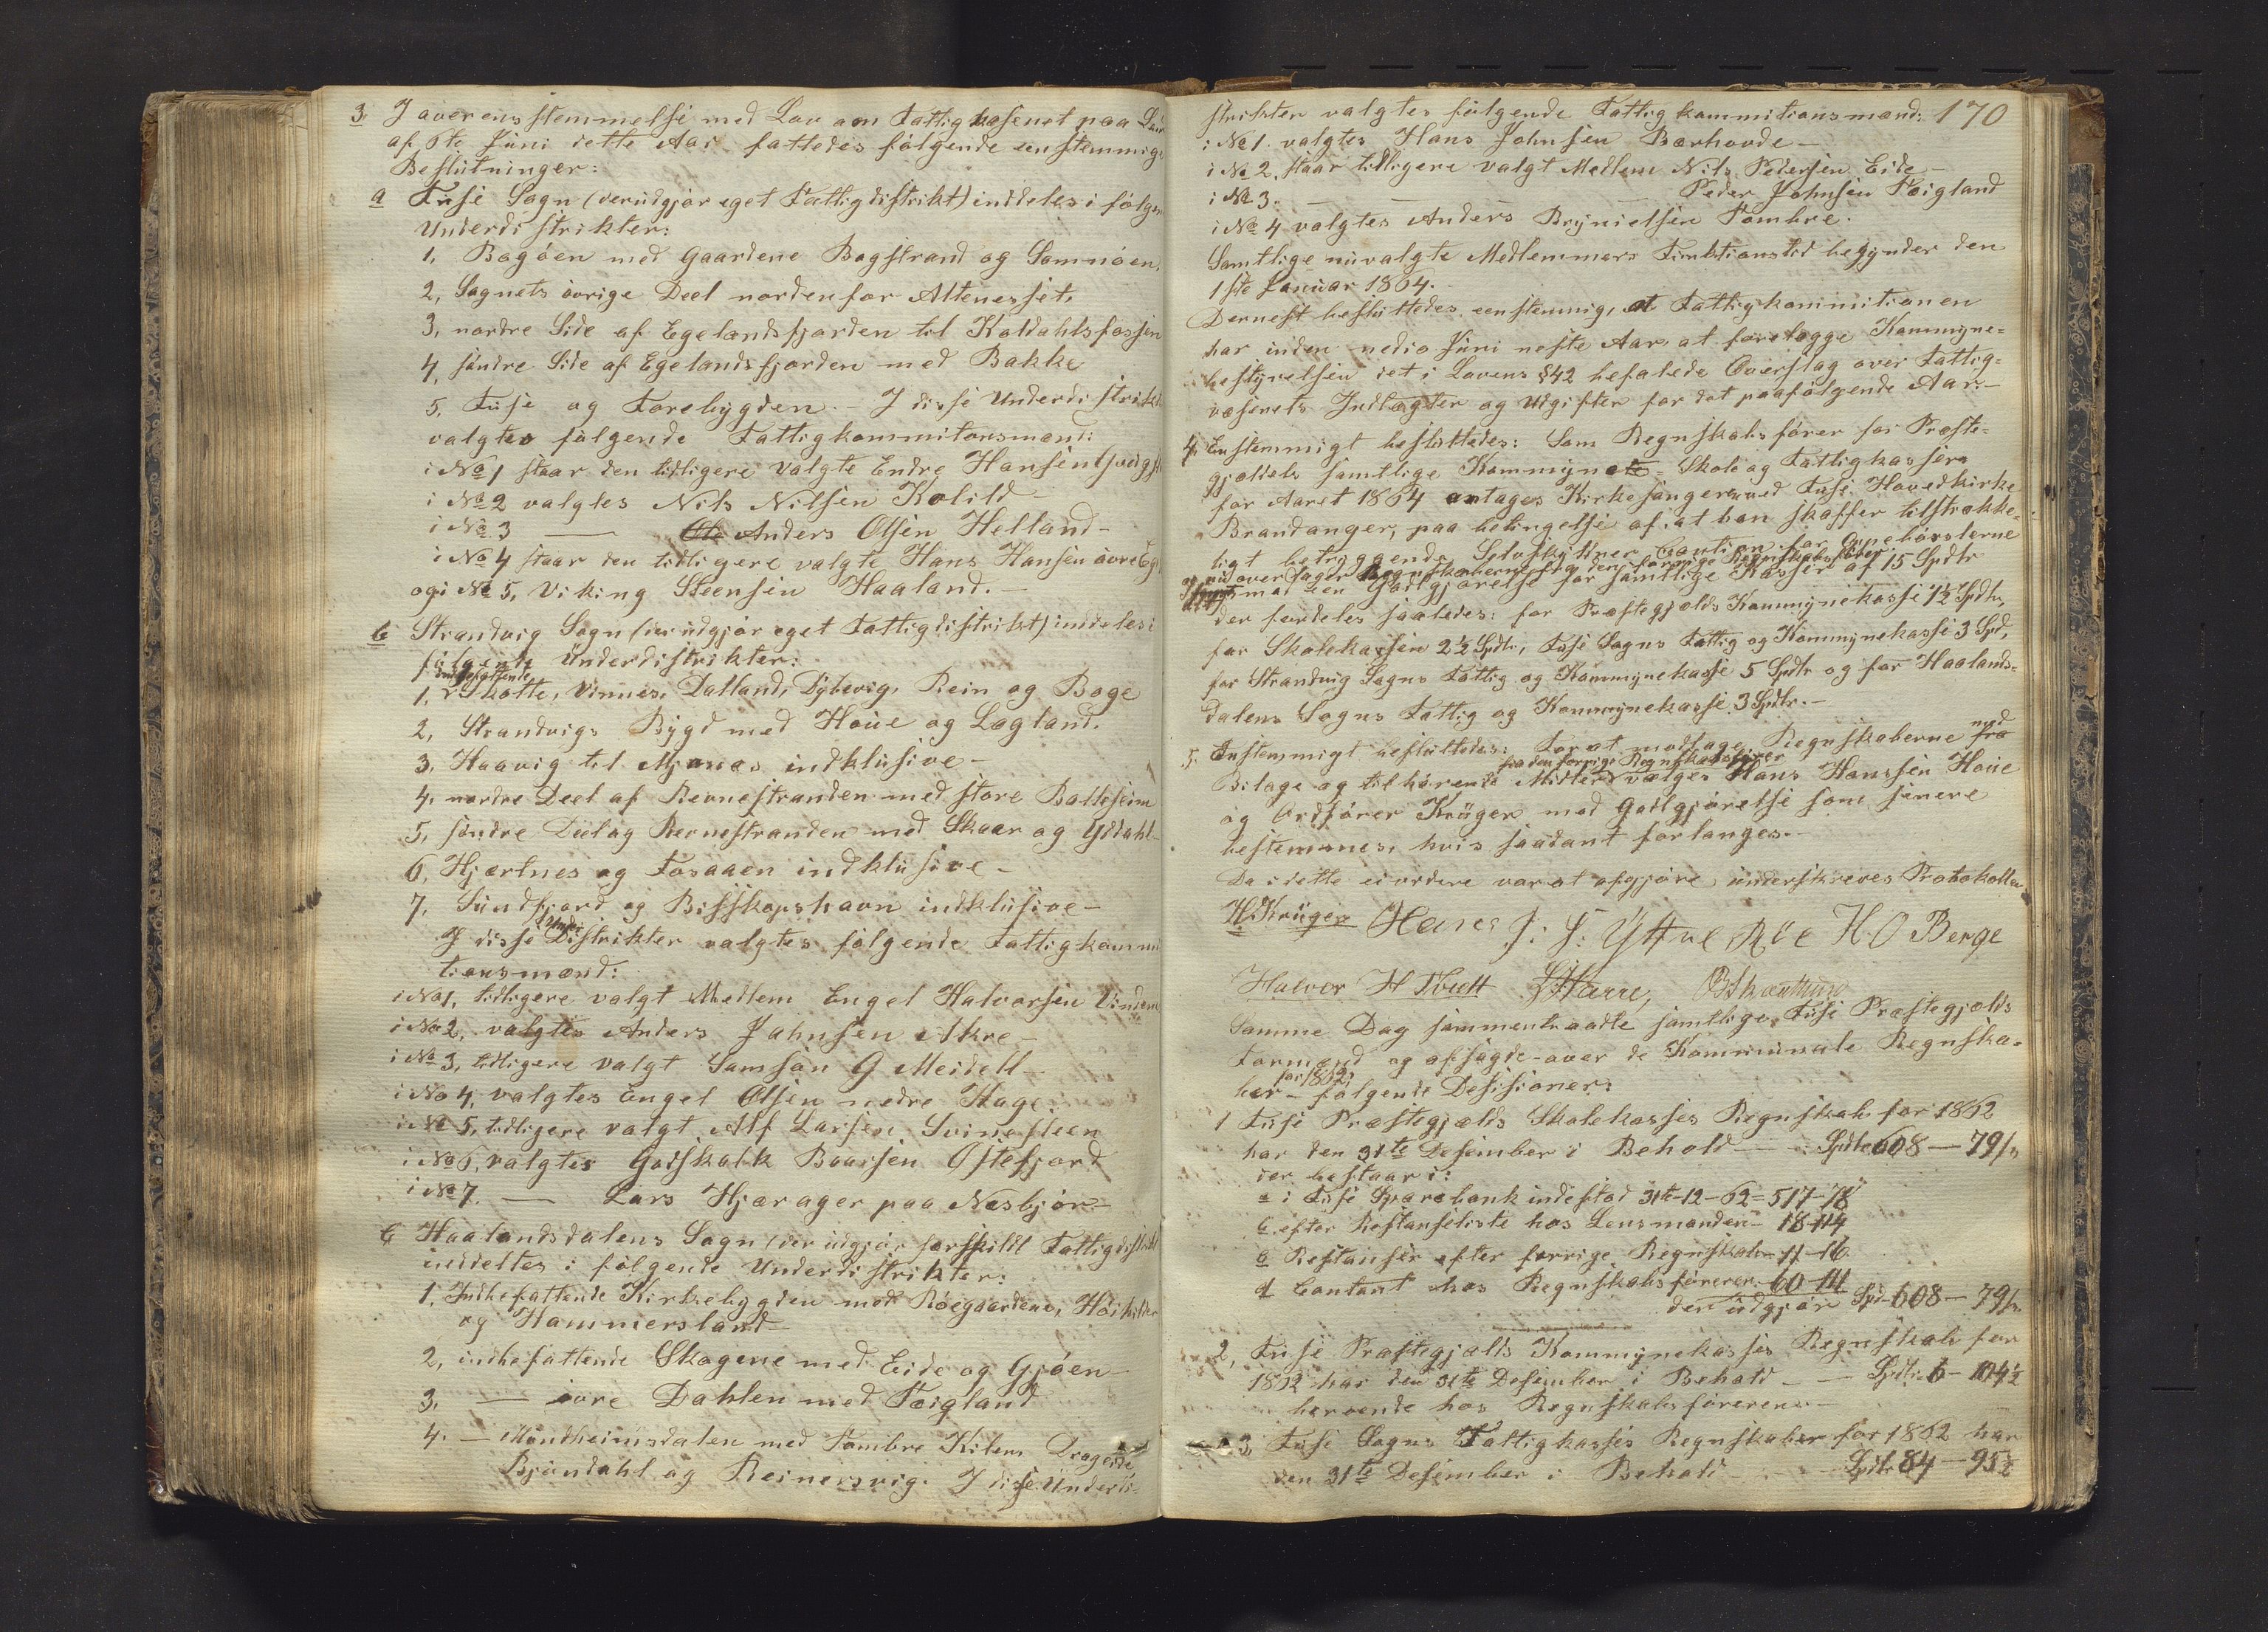 3, I overensstemmelse med Lov om Fattigvæsenet paa Land
af 6te Juni dette Aar fattedes følgende eenstemmige
Beslutninger:
a Fuse Sogn (der udgjør eget Fattigdistrikt) inddeles i følgen
Underdistrikter:
1, Bogøen med Gaardene Bogstrand og Samnøen,
2, Sognets øvrige Deel nordenfor Altenesset,
3, nordre Side af Egelandsfjorden til Koldahlsfossen
4, søndre Side af Egelandsfjorden med Bakke
5, Fuse og Forebygden. – I disse Underdistrikt
valgtes følgende Fattigkommitionsmænd:
i No 1 staar den tidligere valgte Endre Hansen
i No 2 valgtes Nils Nilsen Kolild –
i No 3 — Ole Anders Olsen Helland –
i No 4 staar den tidligere valgte Hans Hansen øvre
og i No 5, Viking Steensen Haaland. –
b Strandvig Sogn (der udgjør eget Fattigdistrikt) inddeles i
følgende Underdistrikter:
indbefattende
1, Skotte, Vinnes, Datland, Dybevig, Rein og Boge
2, Strandvigs Bygd med Houe og Lægland.
3, Haavig til Mjanæs indklusive –
4, nordre Deel af Revnestranden med store Balleseim
5, søndre Deel og Revnestranden med Skaar og Yddahl –
6, Hjartnes og Fosaaen indklusive –
7, Sundfjord og Bisskopshavn indklusive –
Under
I disse Distrikter valgtes følgende Fattigkommi
tionsmænd:
i No 1, tidligere valgt Medlem Engel Halvorsen Vindenes
i No 2, valgtes Anders Johnsen Akre –
i No 3, tidligere valgt Samson G Meidell –
i No 4, valgtes Engel Olsen nedre Hage.
i No 5, tidligere valgt Alf Larsen Svinesteen
i No 6, valgtes Godskalk Baarsen Østefjord
i No 7. — Lars Hjærager paa Næsbjør –
c Haalandsdalens Sogn (der udgjør særskildt Fattigdistrikt
inddeltes i følgende Underdistrikter:
1, Indbefattende Kirkebygden med Røegaardene,
og Hammersland –
2, indbefattende Skogene med Eide og Gjøen –
3, — øvre Dahlen med Føigland
4. — Møndheimsdalen med Tombre Kilen Drageide
Bjøndahl og Reinersvig. I disse Underdi-
170
strikter valgtes følgende Fattigkommitionsmænd:
i No 1. valgtes Hans Johnsen Bærhovde –
i No 2, staar tidligere valgt Medlem Nils Pedersen Eide –
i No 3. — — — Peder Johnsen Føigland
i No 4 valgtes Anders Brynielsen Tombre.
Samtlige nuvalgte Medlemmers Funktionstid begynder den
1ste Januar 1864.
Dernest besluttedes eenstemmig, at Fattigkommitionen
har inden medio Juni neste Aar at forelægge Kommyne-
bestyrelsen det i Lovens §42 befalede Overslag over Fattig-
væsenets Indtægter og Udgifter for det paafølgende Aar. –
4, Enstemmigt besluttedes: Som Regnskabsfører for Præste-
gjældets samtlige Kommyne- Skole og Fattigkasser
for Aaret 1864 antages Kirkesanger ved Fuse Hovedkirke
Brandanger, paa betingelse af, at han skaffer tilstrække-
ligt betryggende Selvskyldner Caution for Oppebørslerne
og nu overtager Regnskaberne fra den forrige Regnskabsfører
mod een Godtgjørelse for samtlige Kasser af 15 Spdlr
der fordeles saaledes: for Præstegjelds Kommynekasse 1½ Spdlr,
for Skolekassen 2½ Spdlr, Fuse Sogns Fattig og Kommynekasse 3 Spd,
for Strandvig Sogns Fattig og Kommynekasse 5 Spdlr og for Haalands-
dalens Sogns Fattig og Kommynekasse 3 Spdlr. –
5, Enstemmigt besluttedes: For at modtage Regnskaberne fra med
fra den forrige Regnskabsfører
Bilage og tilhørende Midler vælges Hans Hanssen Houe
og Ordfører Krüger mod Godtgjørelse som senere
bestemmes, hvis saadant forlanges. –
Da i dette ei videre var at afgjøre, underskreves Protokollen
H. Krüger Hans J: J: Yttre Röe H. O Berge
Halvor H Tvedt
Samme Dag sammentraadte samtlige Fuse Præstegjælds
Formænd og afsagde over de Kommunale Regnska-
for 1862
ber – følgende Desisioner:
1 Fuse Præstegjælds Skolekasses Regnskab for 1862
har den 31te Desember i Behold — Spdlr 608 – 79 ß
der bestaar i:
a i Fuse Sparebank indestod 31te-12-62 = 517 – 78
b efter Restanseliste hos Lensmanden – 18 – 114
c Restanser efter forrige Regnskaber – 11 – 16
d Contant hos Regnskabsføreren – 60 – 111
der udgjør Spd. 608 – 79 ß.
2, Fuse Præstegjælds Kommynekasses Regnskab for
1862 har den 31te Desember i Behold — Spdlr. 6 – 104½
beroende hos Regnskabsføreren –
3, Fuse Sogns Fattigkasses Regnskaber for 1862 har
den 31te Desember i Behold — Spdlr 84 – 95½